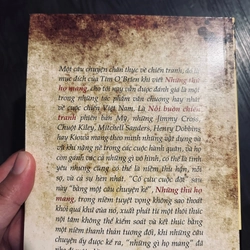 Một câu chuyện chân thực về chiến tranh, đó là
mục đích của Tim O'Brien khi viết Những thứ họ
mang, cho tới nay vẫn được đánh giá là một
trong những tác phẩm văn chương hay nhất
về cuộc chiến Việt Nam, là Nỗi buồn chiến
tranh phiên bản Mỹ, những Jimmy Cross,
Chuột Kiley, Mitchell Sanders, Henry Dobbins
hay Kiowa mang theo mình những vật dụng và
vũ khí nặng nề trong các cuộc hành quân, và họ
còn gánh vác cả những gì vô hình, có thể là tình
yêu nhưng cũng có thể là niềm thù hận, nỗi
sợ, và cả sự hèn nhát. "Cố cứu cuộc đời" sau
này "bằng một câu chuyện kể", Những thứ họ
mang, trong niềm tuyệt vọng không sao thoát
khỏi quá khứ của nó, xuất phát từ một thôi thúc
nội tâm không thể kiểm soát và kết thúc bằng
một niềm thanh thản vô biên, khi những câu
chuyện ấy được kể ra, "những gì họ mang" đã